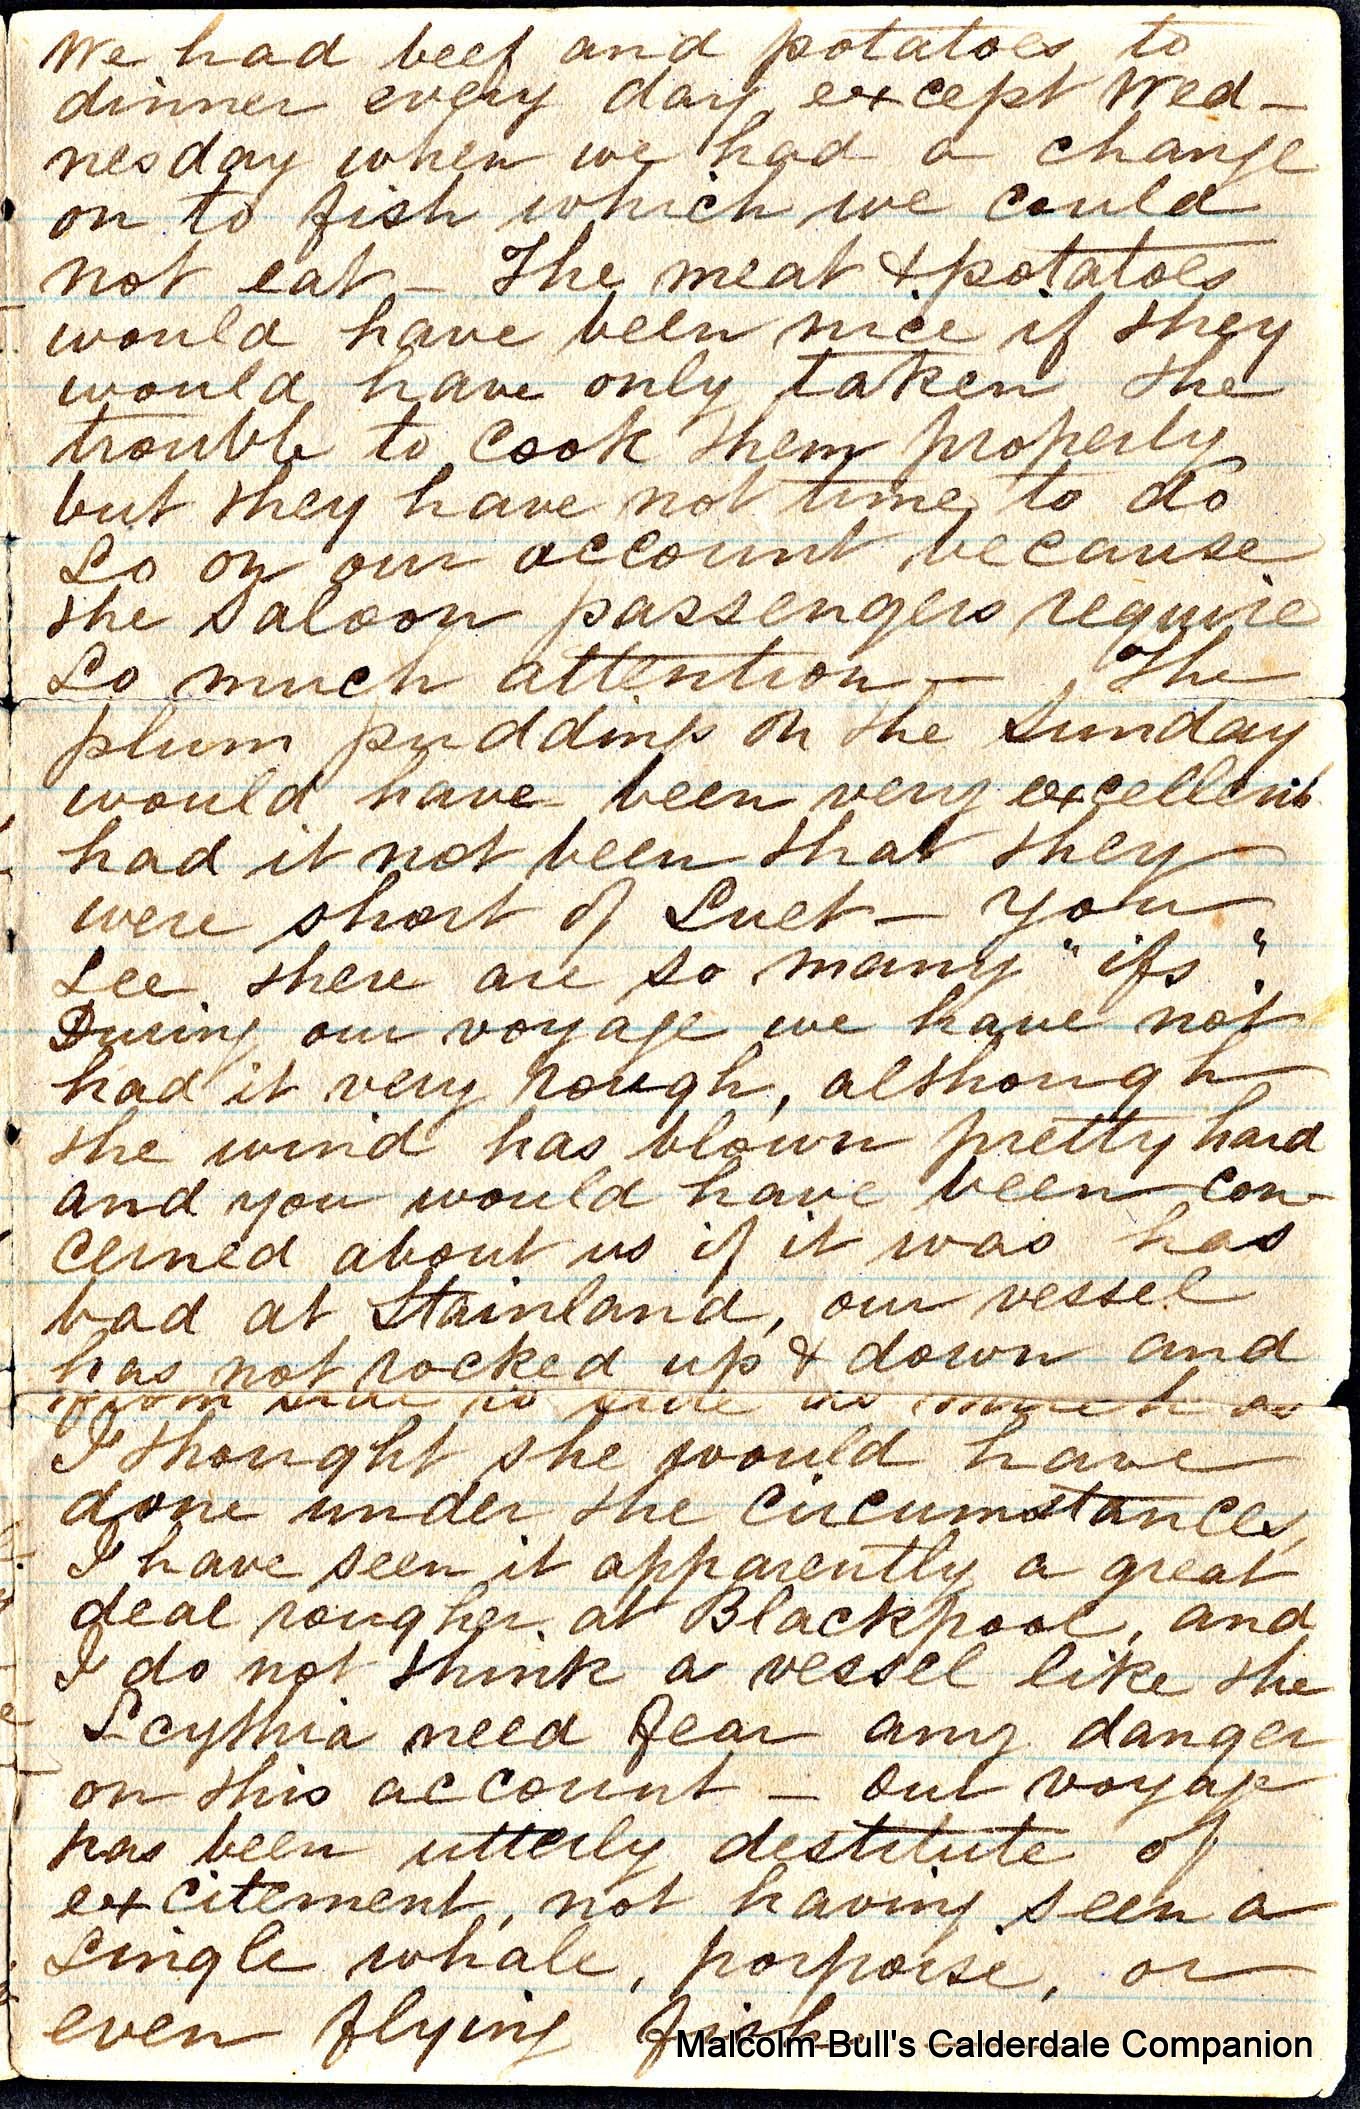 We had beef and potatoes to
dinner every day except Wed-
nesday when we had a change
on to fish which we could
not eat - The meat & potatoes
would have been nice if they
would have only taken the
trouble to cook them properly
but they have not time to do
so on our account because
the saloon passengers require
so much attention - The
plum pudding on the Sunday
would have been very excellent
had it not been that they
were short of Suet - You
see there are so many "ifs".
During our voyage we have not
had it very rough, although
the wind has blown pretty hard
and you would have been con-
cerned about us if it was has
bad at Stainland, our vessel
has not rocked up & down and
from side to side as much as
I thought she would have
done under the circumstances,
I have seen it apparently a great
deal rougher at Blackpool, and
I do not think a vessel like the
Scythia need fear any danger
on this account - Our voyage
has been utterly destitute of
excitement, not having seen a
single whale, porpoise, or
even flying fish
Malcolm Bull's Calderdale Companion